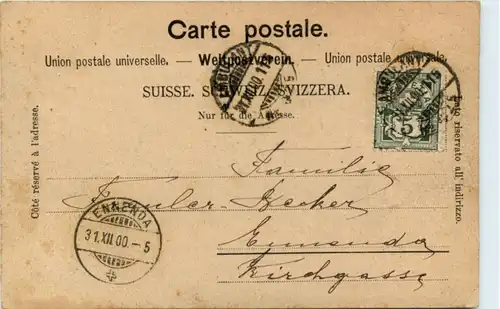 Carte postale.
Union postale universelle. — Weltpostverein. — Unione postale universale.
SUISSE. SCHWEIZ. SVIZZERA.
Nur für die Adresse.
Côté réservé à l'adresse.
Lato riservato all' indirizzo.
AMBULANT
31.XII.00.
AMBULANT
XII.00.
5
Familie
Becker
Ennenda
Kirchgasse
ENNENDA
31.XII.00.-5